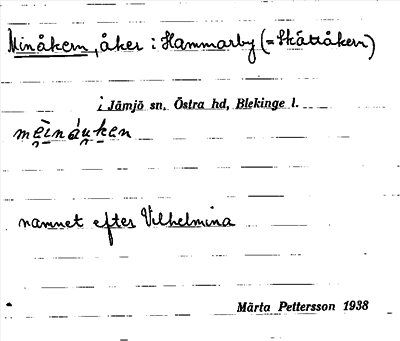 Minåkern, åker i Hammarby (= Skättåkern)
i Jämjö sn, Östra hd, Blekinge l.
mèináuken
namnet efter Vilhelmina
Märta Pettersson 1938